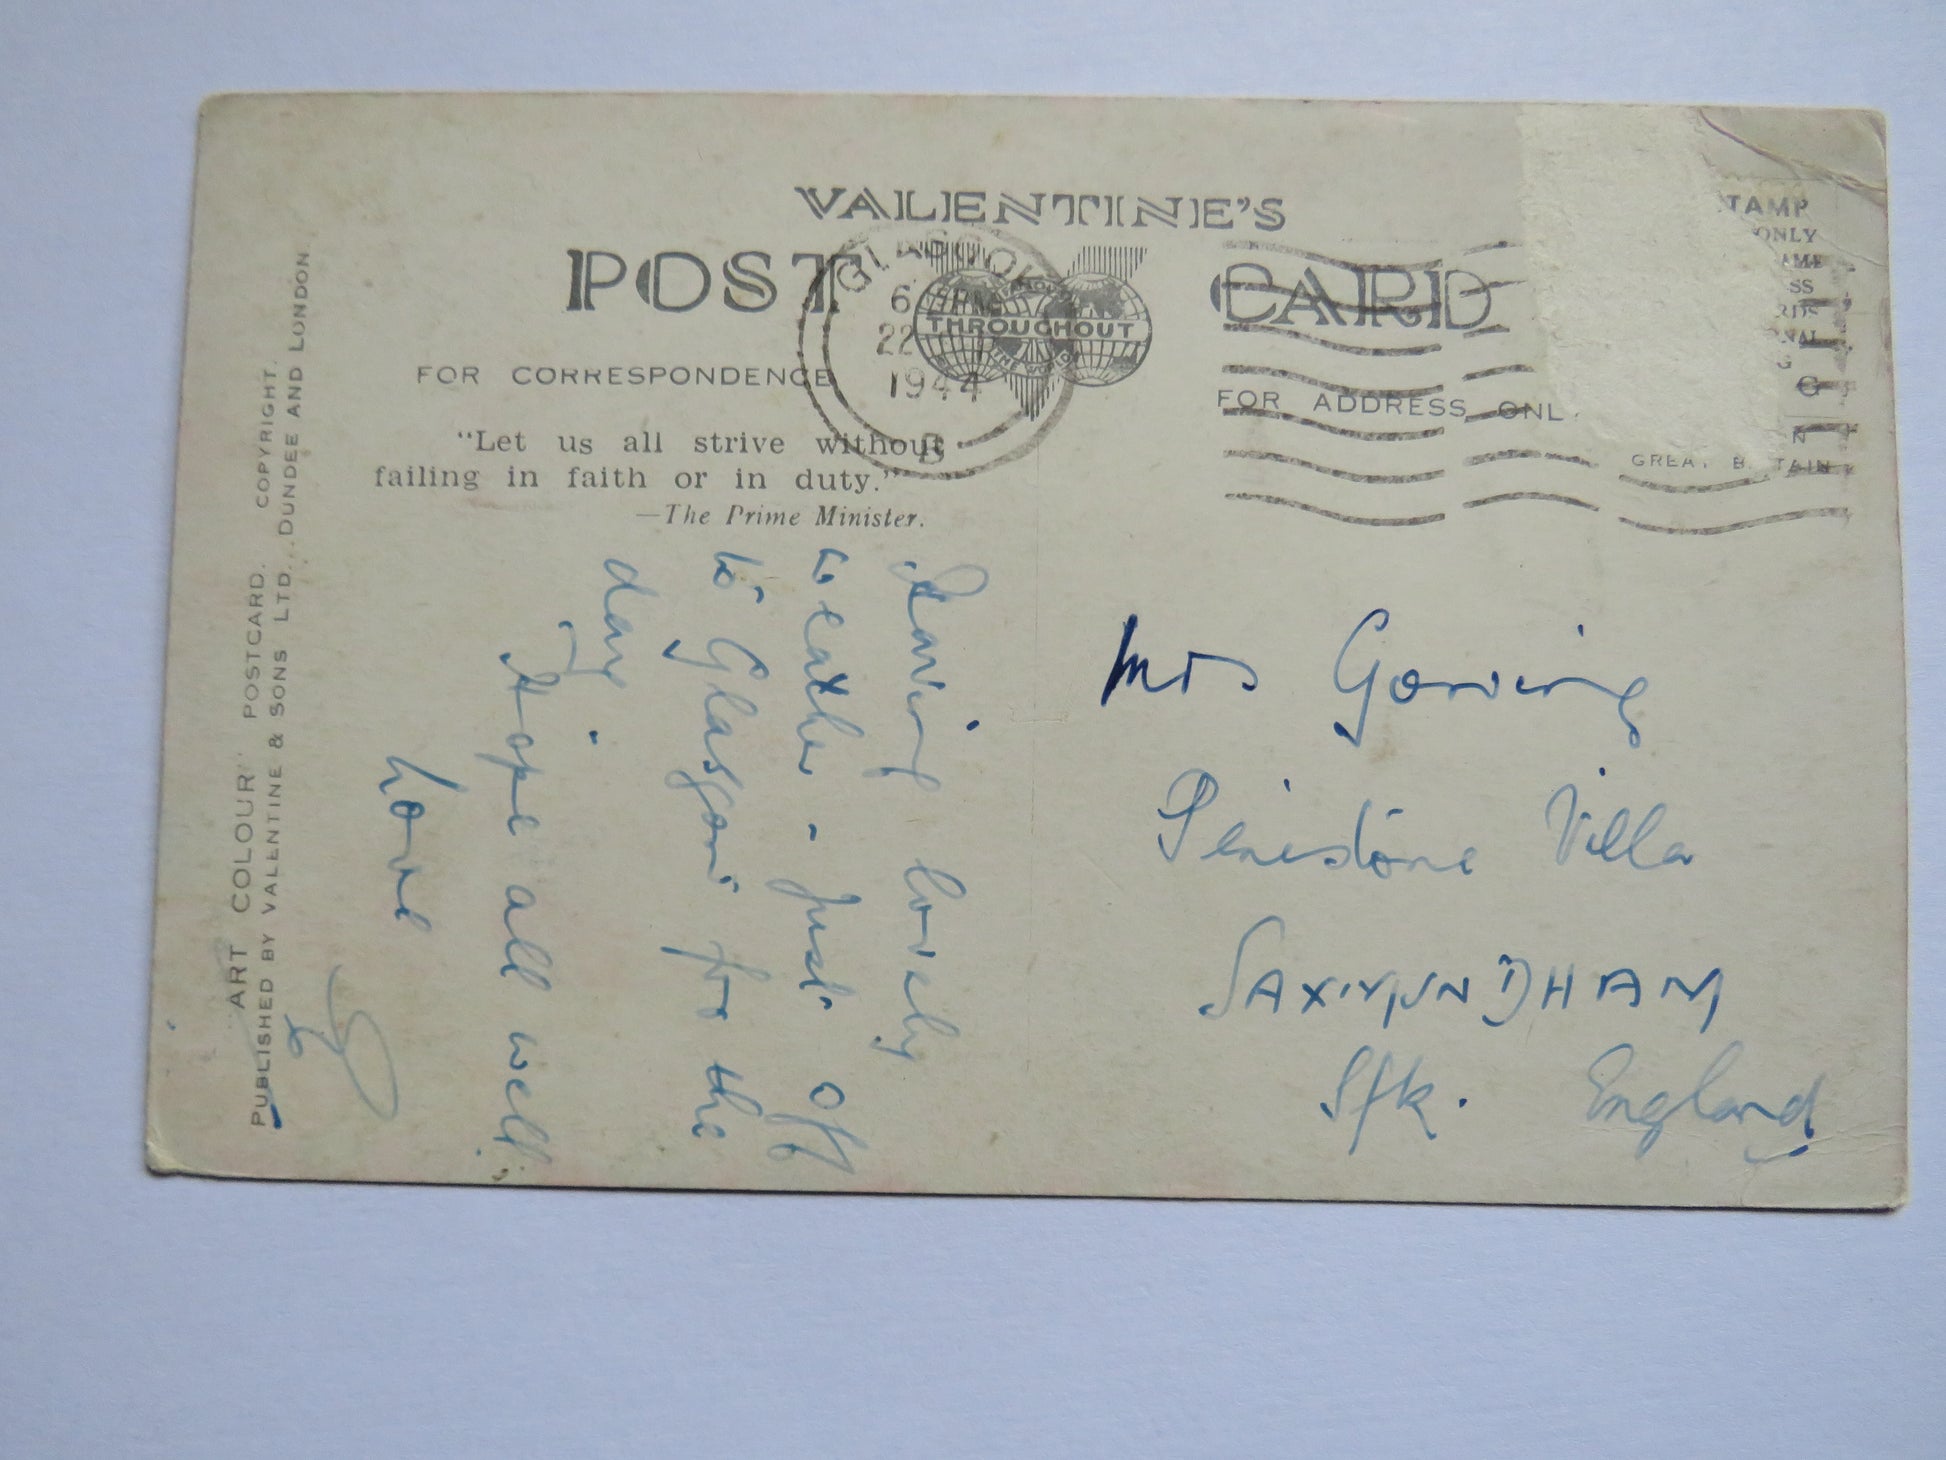 VALENTINE'S
POST CARD
THROUGHOUT
THE WORLD
GLASGOW
6
22
1944
B
FOR CORRESPONDENCE
FOR ADDRESS ONL
"Let us all strive without
failing in faith or in duty."
—The Prime Minister.
TAMP
ONLY
GREAT B TAIN
Having lovely
weather - just off
to Glasgow for the
day.
Hope all well
Love
Mrs
Penistone Villa
SAXMUNDHAM
Sfk. England
"ART COLOUR" POSTCARD. COPYRIGHT.
PUBLISHED BY VALENTINE & SONS LTD., DUNDEE AND LONDON